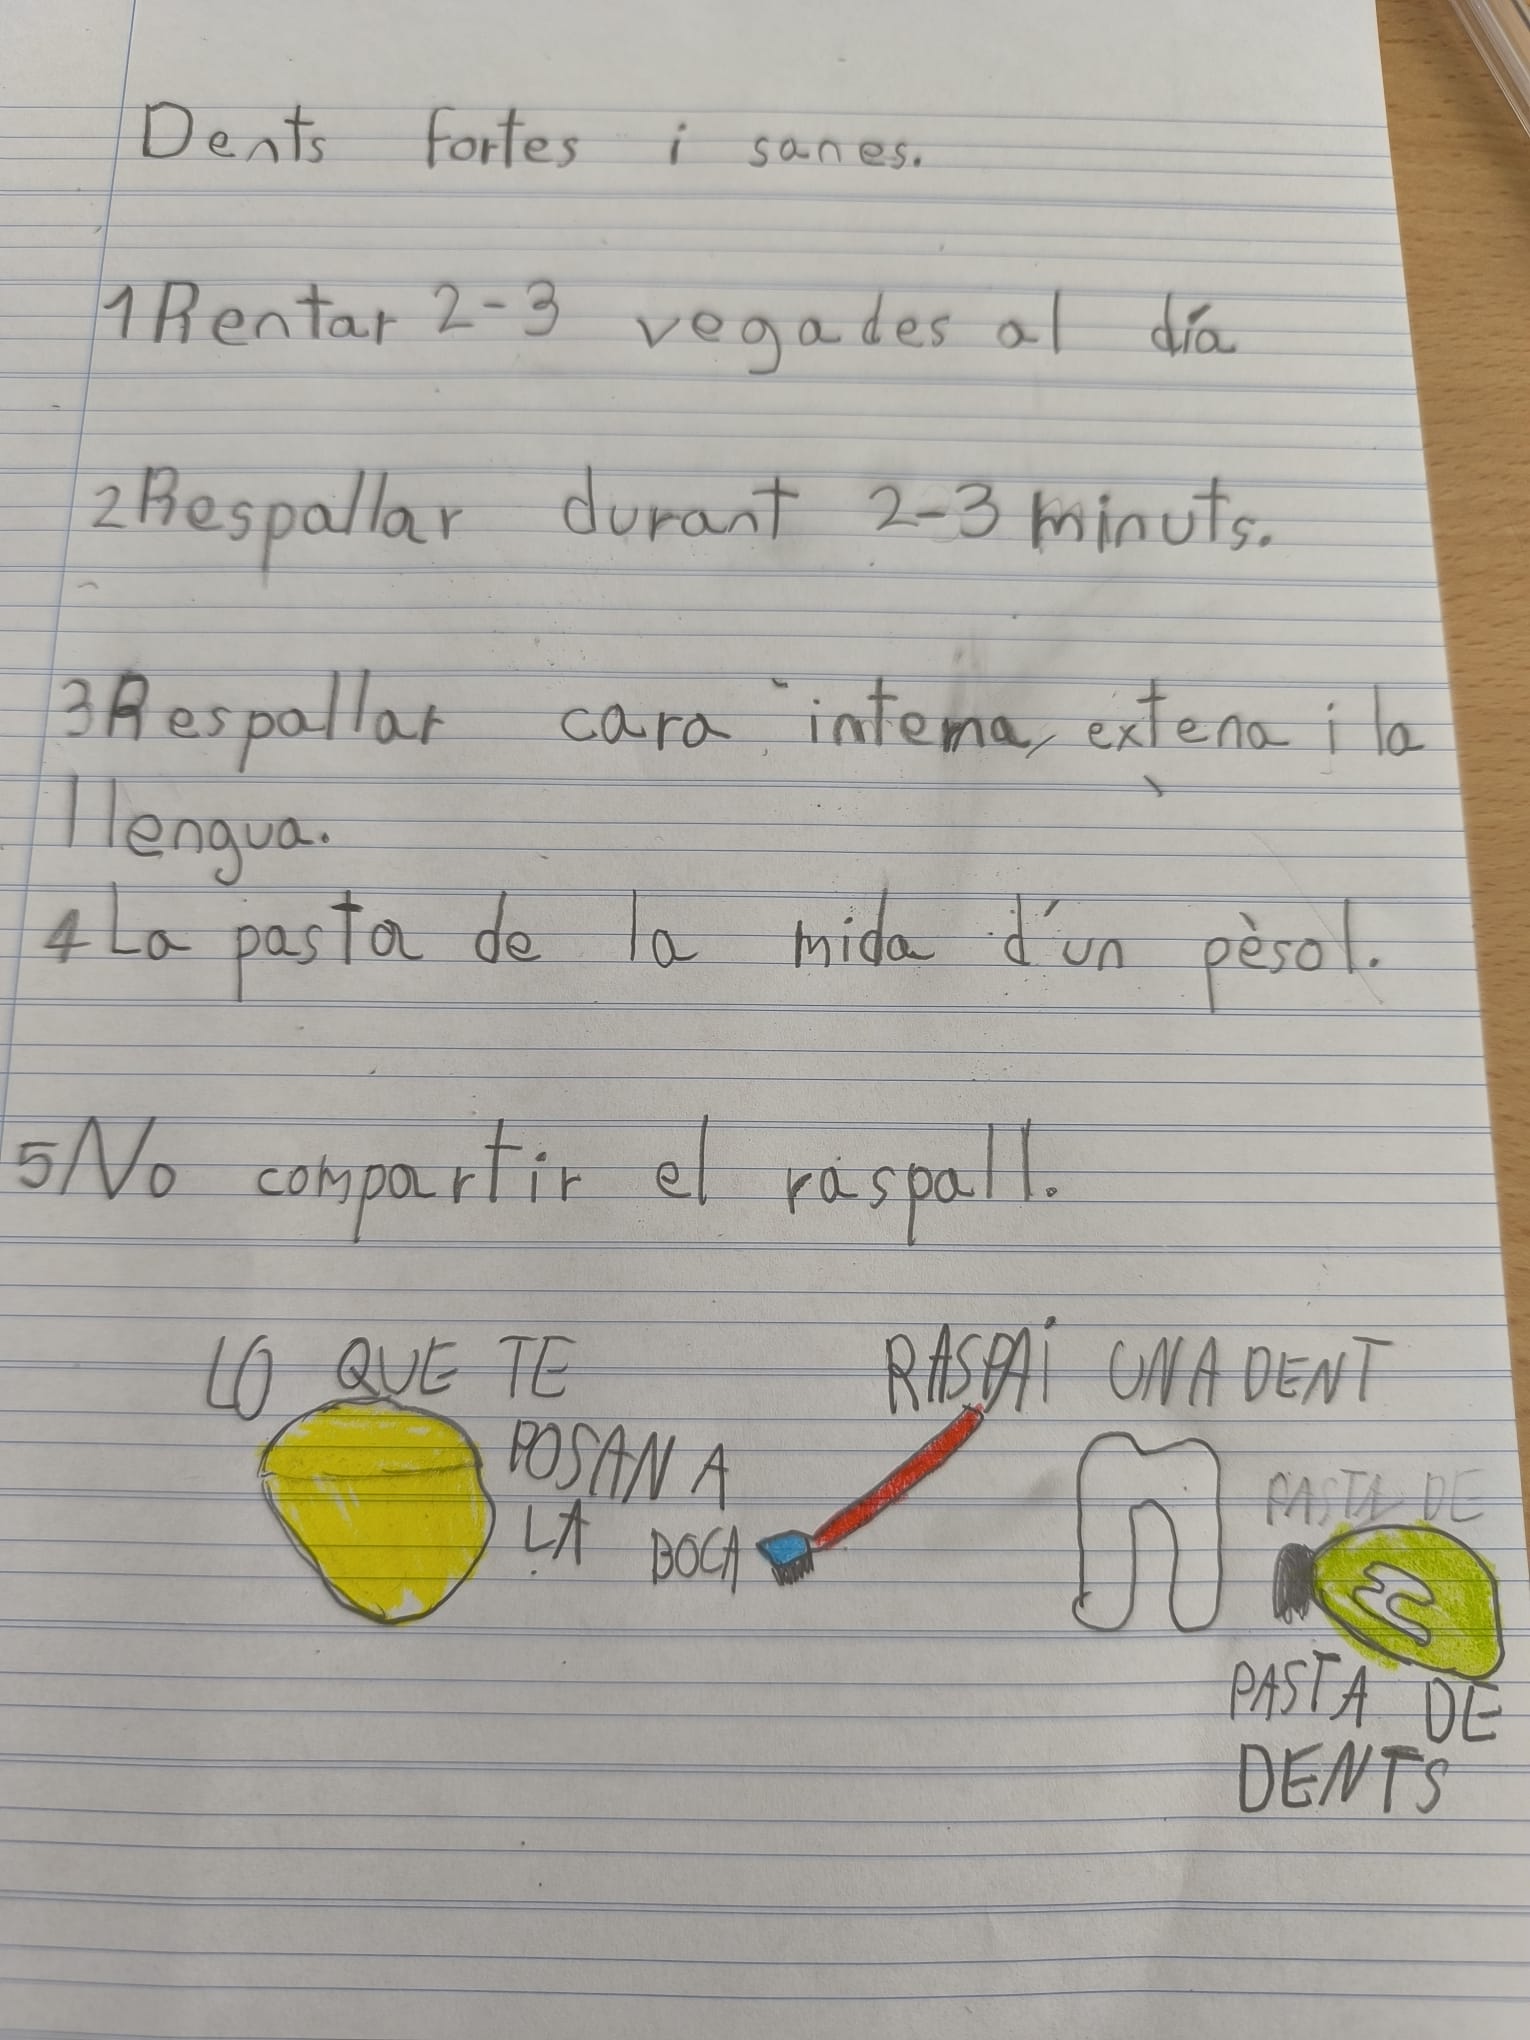 Dents fortes i sanes.
1 Rentar 2-3 vegades al día
2 Respallar durant 2-3 minuts.
3 Respallar cara interna, extena i la
llengua.
4 La pasta de la mida d'un pèsol.
5 No compartir el raspall.
LO QUE TE
POSAN A
LA BOCA
RASPAi
UNA DENT
PASTA DE
PASTA DE
DENTS